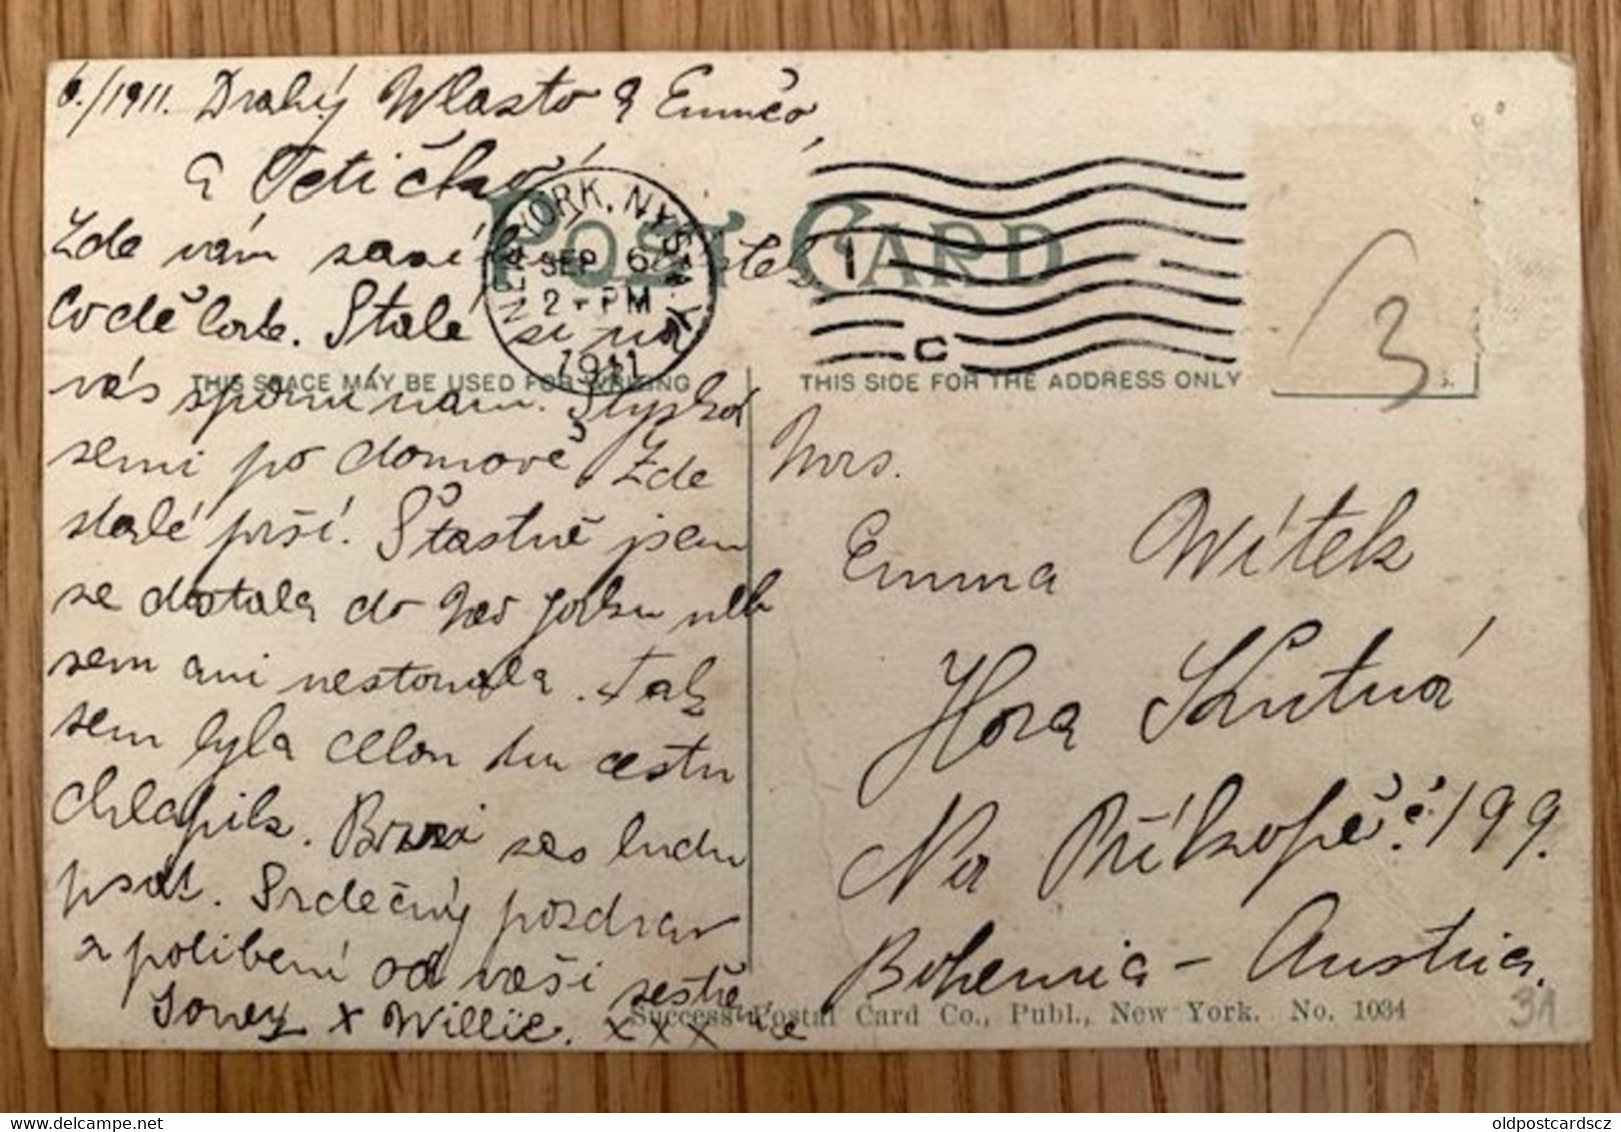 6./1911. Drahý Wlasto a Emičo,
a Tetičko
Zde vám
Co děláte. Stále si na
vás spomínám. Stýská
semi po domově. Zde
stále prší. Štastně jsem
se dostala do New Yorku
sem ani nestonala. Tak
sem byla celou tu cestu
chlapík. Brzi zas budu
psát. Srdečný pozdrav
a polibení od vaší sestře
X Willie. XXX
NEW YORK, N.Y.
SEP 6
2 - PM
1911
1
C
POST CARD
THIS SPACE MAY BE USED FOR WRITING
THIS SIDE FOR THE ADDRESS ONLY
3
Mrs.
Emma Wítek
Hora Kutná
Na Příkopě č. 199.
Bohemia - Austria.
Success Postal Card Co., Publ., New York. No. 1034
31
oldpostcardscz